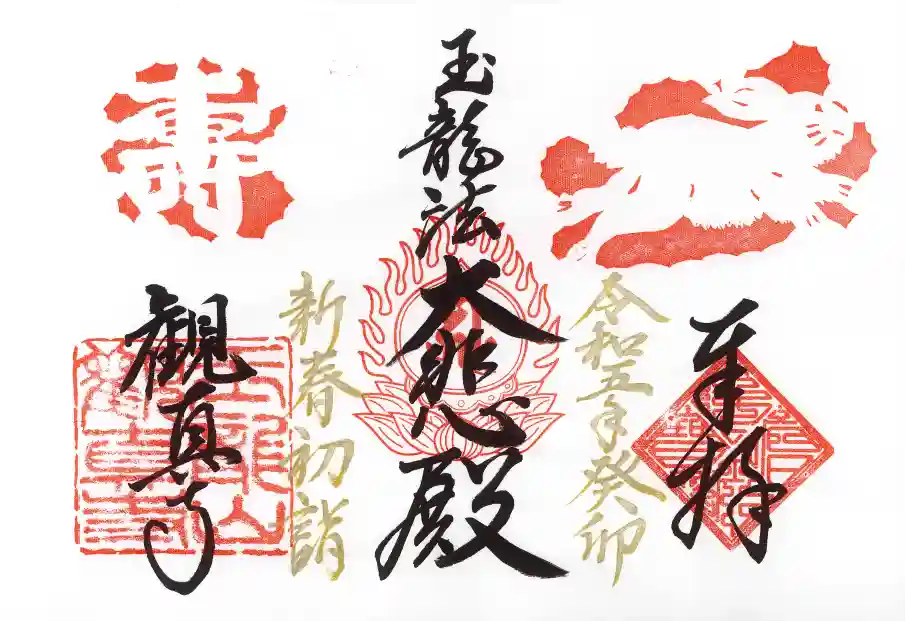 奉拝
令和五年癸卯
玉龍法
大悲心殿
新春初詣
寿
観真寺